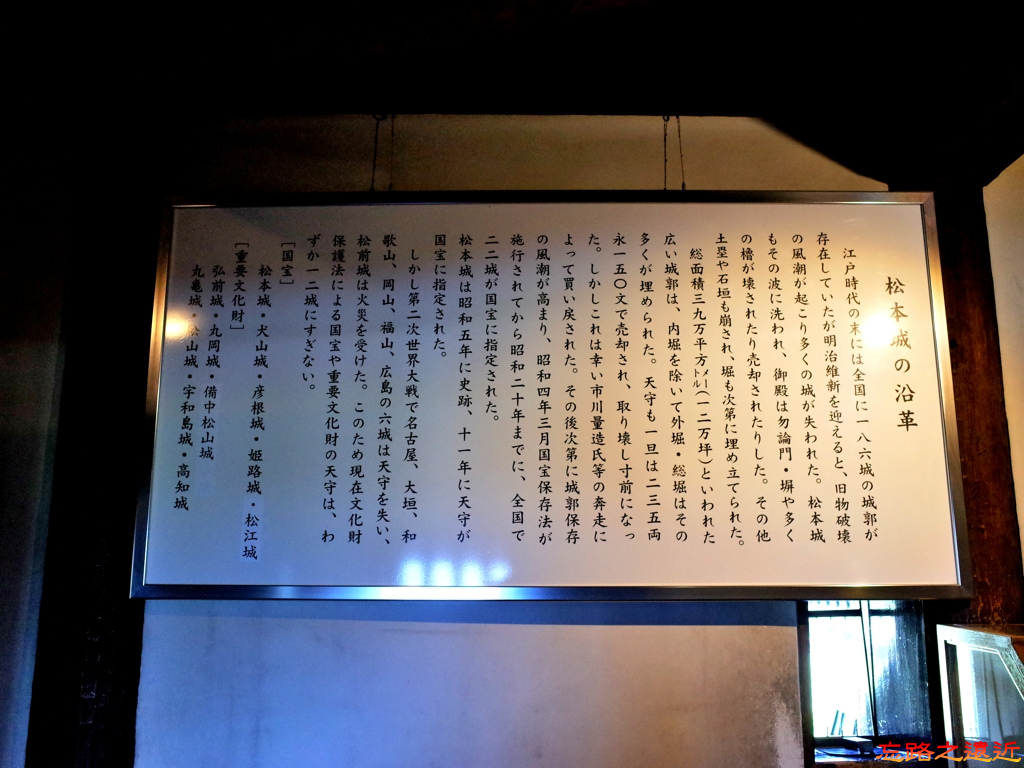 松本城の沿革
江戸時代の末には全国に一八六城の城郭が
存在していたが明治維新を迎えると、旧物破壊
の風潮が起こり多くの城が失われた。松本城
もその波に洗われ、御殿は勿論門・塀や多く
の櫓が壊されたり売却されたりした。その他
土塁や石垣も崩され、堀も次第に埋め立てられた。
総面積三九万平方メートル(一二万坪)といわれた
広い城郭は、内堀を除いて外堀・総堀はその
多くが埋められた。天守も一旦は二三五両
永一五〇文で売却され、取り壊し寸前になっ
た。しかしこれは幸い市川量造氏等の奔走に
よって買い戻された。その後次第に城郭保存
の風潮が高まり、昭和四年三月国宝保存法が
施行されてから昭和二十年までに、全国で
二二城が国宝に指定された。
松本城は昭和五年に史跡、十一年に天守が
国宝に指定された。
しかし第二次世界大戦で名古屋、大垣、和
歌山、岡山、福山、広島の六城は天守を失い、
松前城は火災を受けた。このため現在文化財
保護法による国宝や重要文化財の天守は、わ
ずか一二城にすぎない。
[国宝]
松本城・犬山城・彦根城・姫路城・松江城
[重要文化財]
弘前城・丸岡城・備中松山城
丸亀城・松山城・宇和島城・高知城
忘路之遠近